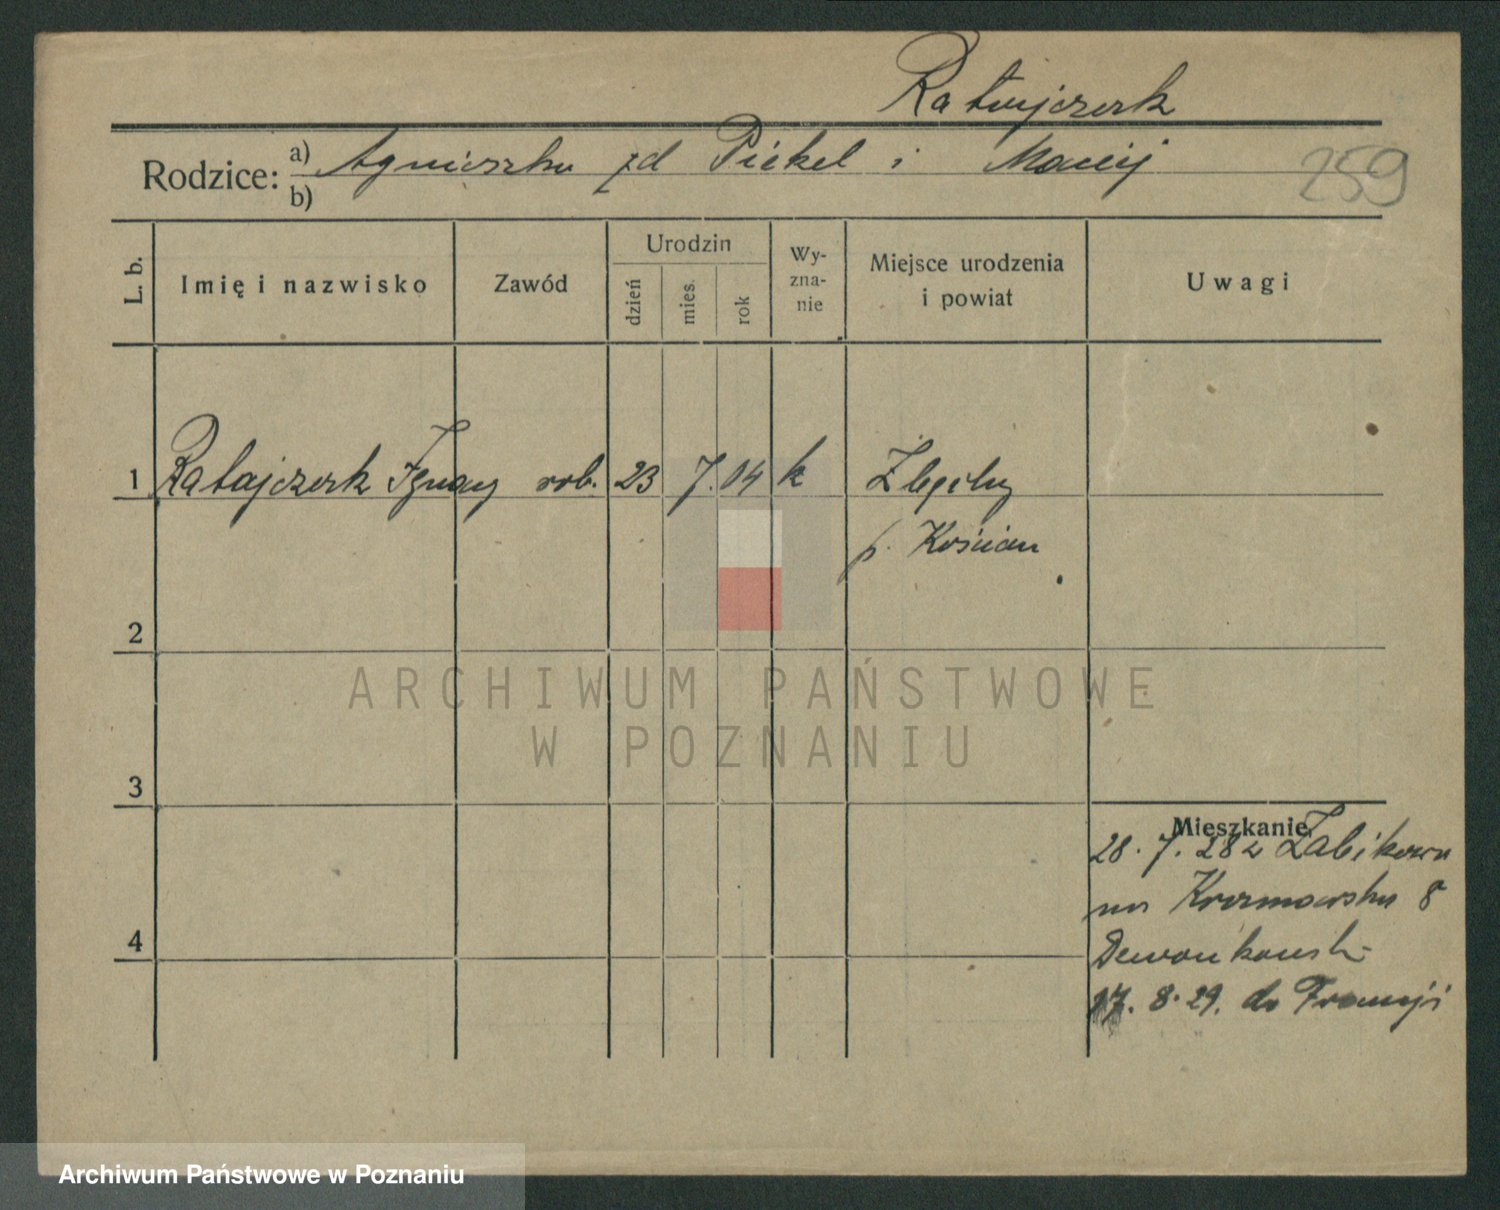 Ratajczak
Rodzice: a) Agnieszka zd Piekel i Maciej
b)
259
L. b.
Imię i nazwisko
Zawód
Urodzin
dzień
mies.
rok
Wy-
zna-
nie
Miejsce urodzenia
i powiat
Uwagi
1 Ratajczak Ignacy rob. 23 7. 04 k
p. Kościan
2
3
4
Mieszkanie
28. 7. 28 z Żabikowa
na 8
17. 8. 29. do Francji
ARCHIWUM PAŃSTWOWE
W POZNANIU
Archiwum Państwowe w Poznaniu